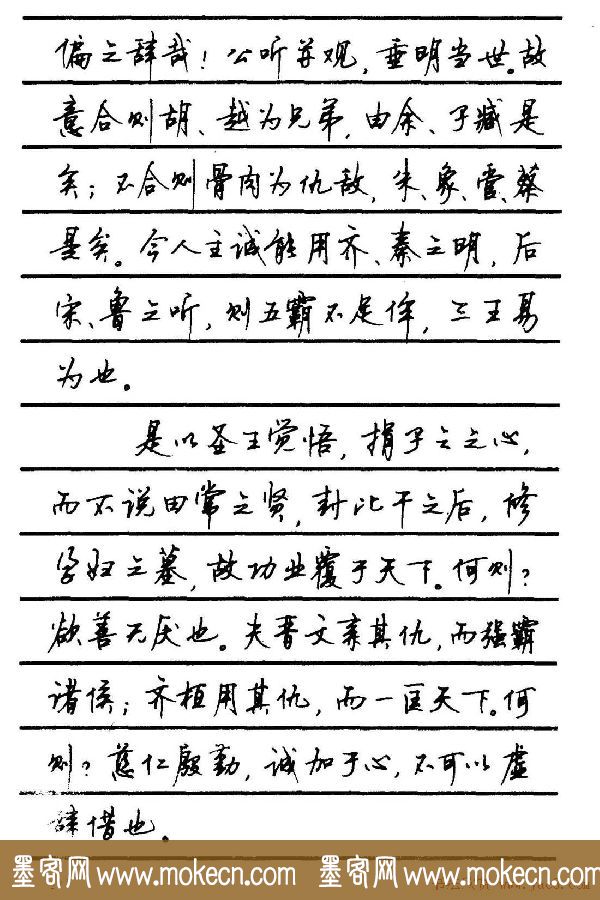 偏之辞哉！公听并观，垂明当世。故
意合则胡、越为兄弟，由余、子臧是
矣；不合则骨肉为仇敌，朱、象、管、蔡
是矣。今人主诚能用齐、秦之明，后
宋、鲁之听，则五霸不足侔，三王易
为也。
是以圣王觉悟，捐子之之心，
而不说田常之贤，封比干之后，修
孕妇之墓，故功业覆于天下。何则？
欲善无厌也。夫晋文亲其仇，而强霸
诸侯；齐桓用其仇，而一匡天下。何
则？慈仁殷勤，诚加于心，不可以虚
辞借也。
墨客网 www.mokecn.com 墨客网 www.mokecn.com